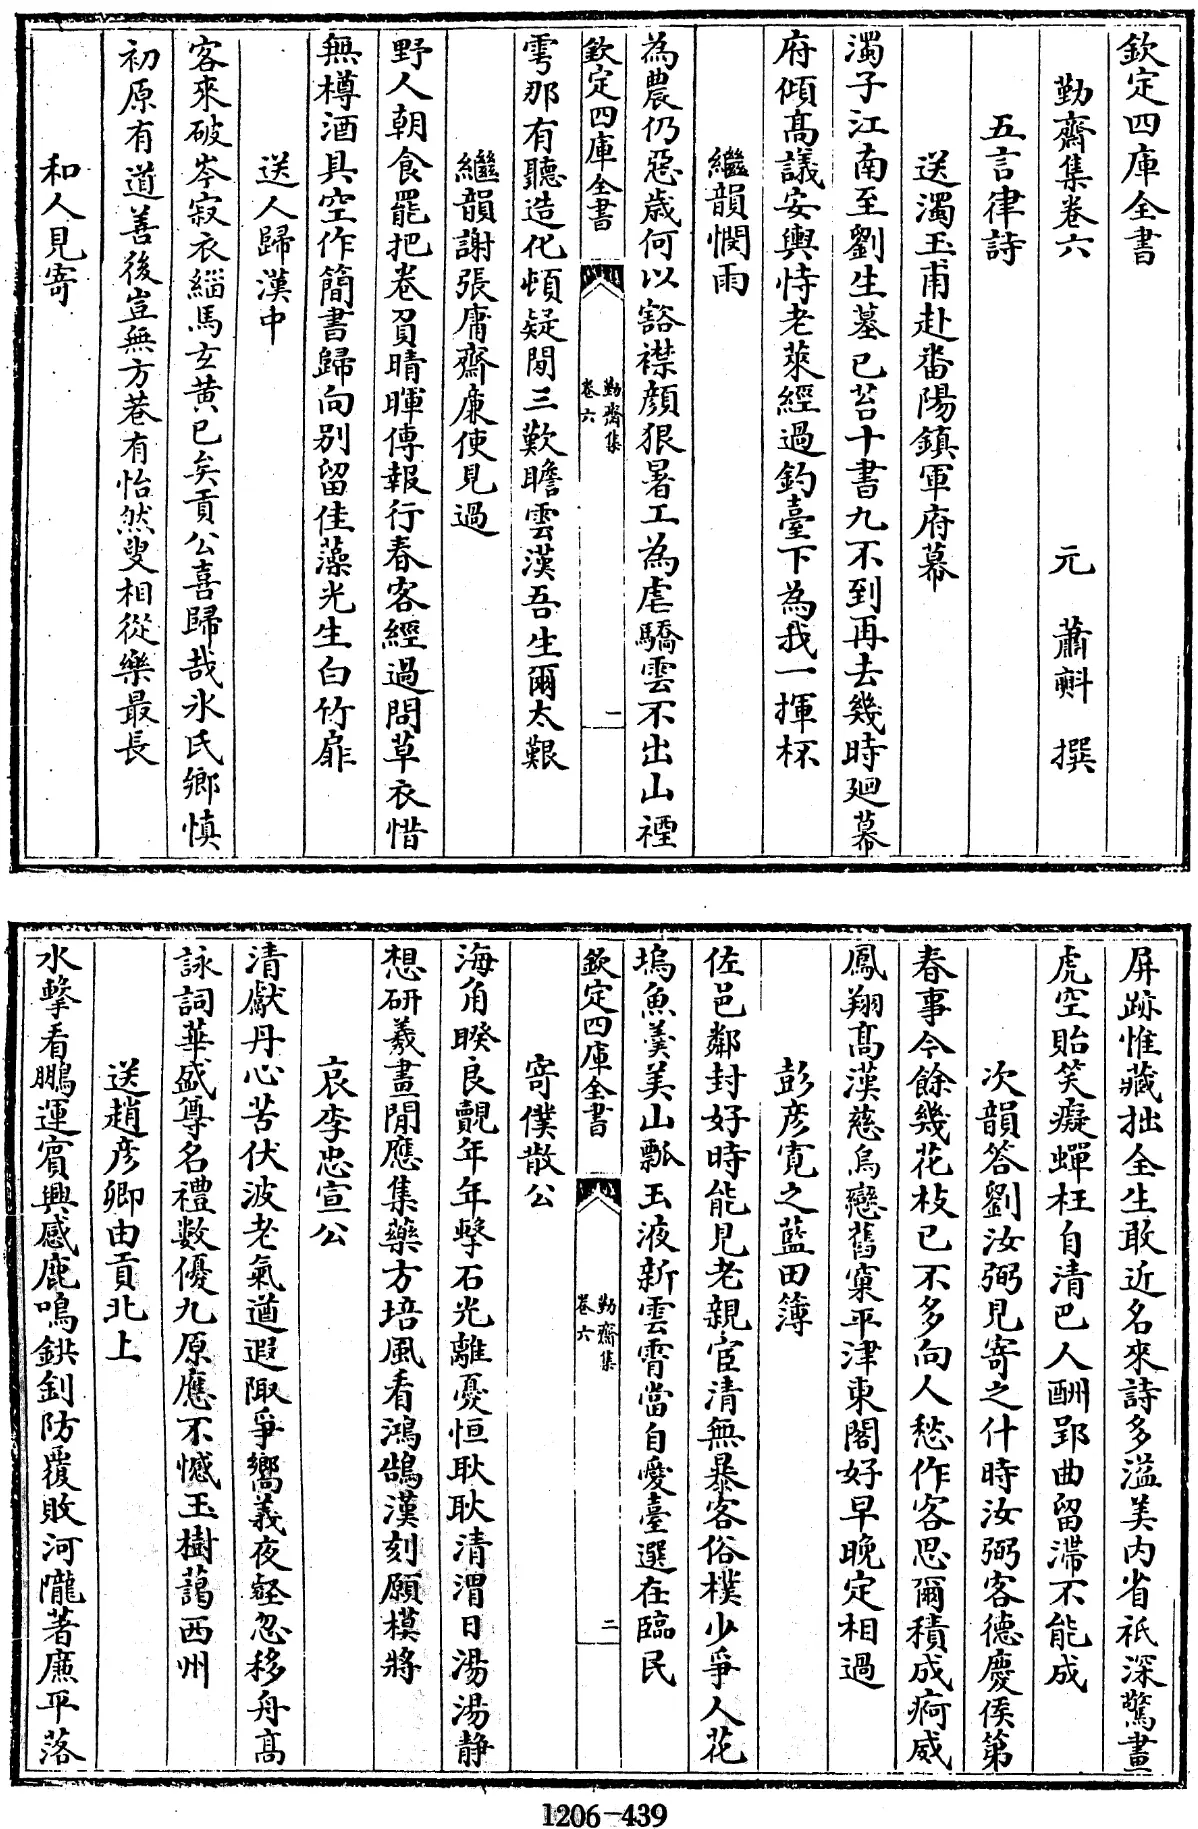 欽定四庫全書
勤齋集卷六
元 蕭㪺 撰
五言律詩
送濁玉甫赴畨陽鎮軍府幕
濁子江南至劉生墓已苔十書九不到再去幾時廻幕
府傾髙議安輿恃老萊經過釣臺下為我一揮杯
繼韻憫雨
為農仍惡歳何以豁襟顔狠暑工為虐驕雲不出山禋
欽定四庫全書
勤齋集
卷六
一
雩那有聽造化頓疑閒三歎瞻雲漢吾生爾太艱
繼韻謝張庸齋亷使見過
野人朝食罷把卷負晴暉傳報行春客經過問草衣惜
無樽酒具空作簡書歸向别留佳藻光生白竹扉
送人歸漢中
客來破岑寂衣緇馬玄黄已矣貢公喜歸哉氷氏鄉慎
初原有道善後豈無方巷有怡然叟相從樂最長
和人見寄
屏跡惟藏拙全生敢近名來詩多溢美内省祇深驚畫
虎空貽笑癡蟬枉自清巴人酬郢曲留滯不能成
次韻答劉汝弼見寄之什時汝弼客德慶侯第
春事今餘幾花枝已不多向人愁作客思爾積成痾威
鳳翔髙漢慈烏戀舊窠平津東閣好早晚定相過
彭彦寛之藍田簿
佐邑鄰封好時能見老親宦清無暴客俗樸少爭人花
塢魚羮美山瓢玉液新雲霄當自愛臺選在臨民
欽定四庫全書
勤齋集
卷六
二
寄僕散公
海角暌良覿年年擊石光離憂恒耿耿清渭日湯湯靜
想研羲畫閒應集藥方培風看鴻鵠漢刻願模將
哀李忠宣公
清獻丹心苦伏波老氣遒遐陬爭嚮義夜壑忽移舟髙
詠詞華盛尊名禮數優九原應不憾玉樹藹西州
送趙彦卿由貢北上
水擊看鵬運賓興感鹿鳴鉷釗防覆敗河隴著亷平落
1206-439